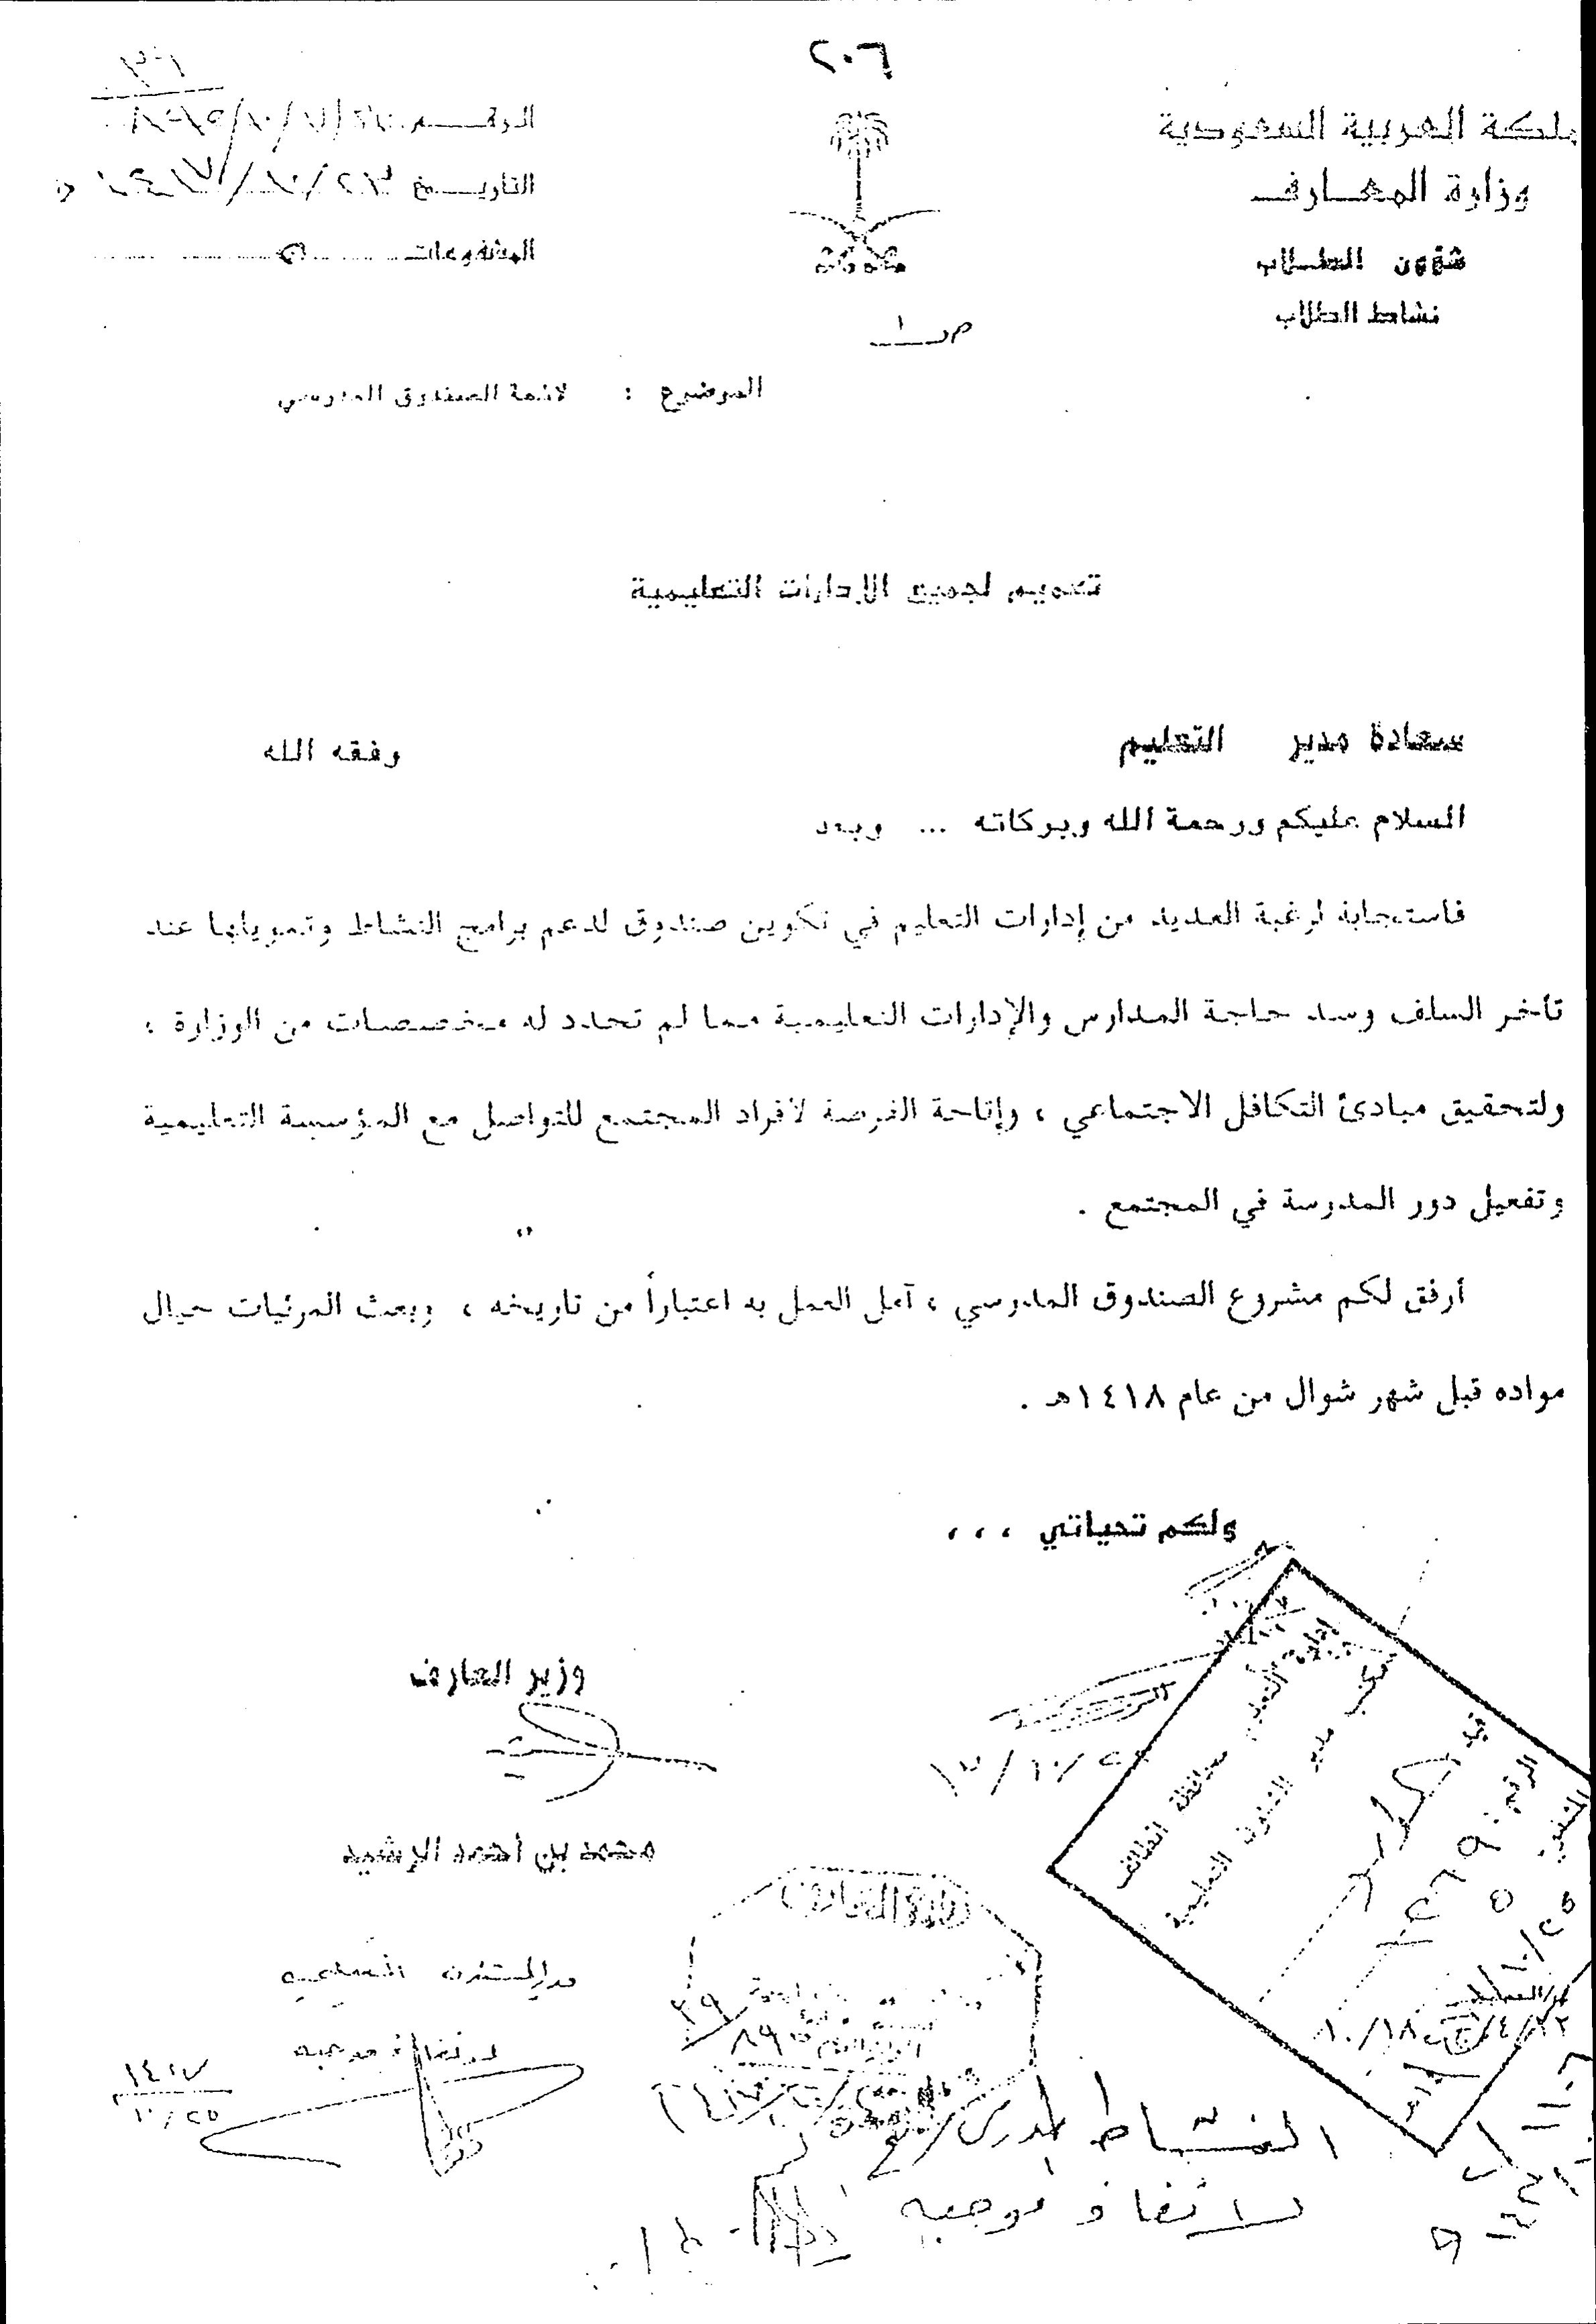 ٢٠٦
المملكة العربية السعودية
وزارة المعارف
شؤون الطلاب
نشاط الطلاب
الرقم
التاريخ
المشفوعات
الموضوع : لائحة الصندوق المدرسي
تعميم لجميع الإدارات التعليمية
سعادة مدير التعليم وفقه الله
السلام عليكم ورحمة الله وبركاته ... وبعد
فاستجابة لرغبة العديد من إدارات التعليم في تكوين صندوق لدعم برامج النشاط وتمويلها عند
تأخر السلف وسد حاجة المدارس والإدارات التعليمية مما لم تحدد له مخصصات من الوزارة ،
ولتحقيق مبادئ التكافل الاجتماعي ، وإتاحة الفرصة لأفراد المجتمع للتواصل مع المؤسسة التعليمية
وتفعيل دور المدرسة في المجتمع .
أرفق لكم مشروع الصندوق المدرسي ، آمل العمل به اعتباراً من تاريخه ، وبعث المرئيات حيال
مواده قبل شهر شوال من عام ١٤١٨هـ .
ولكم تحياتي ، ، ،
وزير المعارف
محمد بن أحمد الرشيد
إدارة التعليم بمحافظة الطائف
مكتب مدير الشئون التعليمية
قيد
الرقم :
وزارة المعارف
١٤١٧
١٠/٢٥
النشاط المدرسي
لإنفاذ موجبه